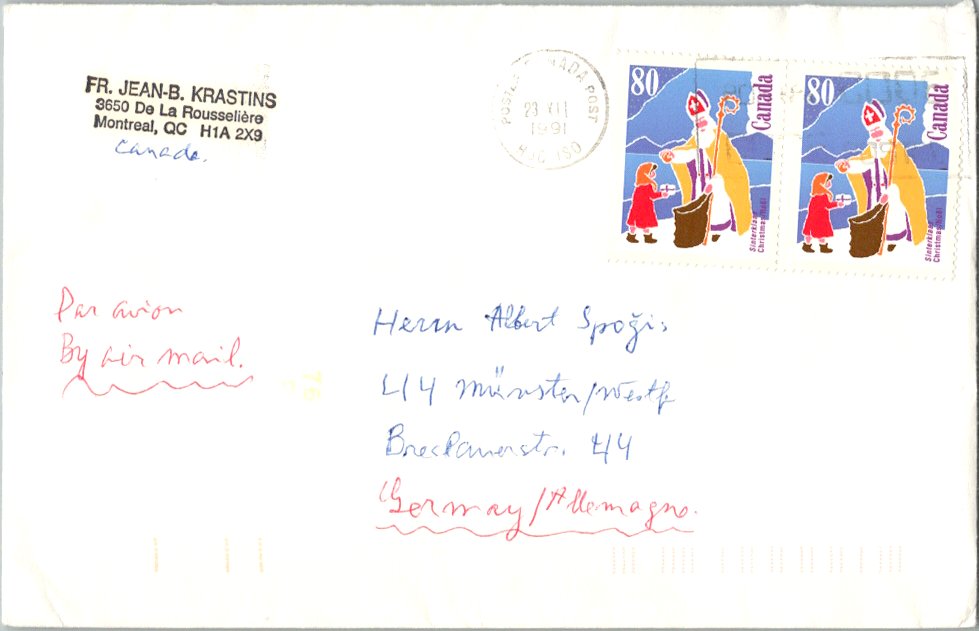 FR. JEAN-B. KRASTINS
3650 De La Rousselière
Montreal, QC H1A 2X9
Canada.
POSTES CANADA POST
23 XII
1991
H1C 1S0
80
Canada
Sinterklaas
Christmas/Noël
80
Canada
Sinterklaas
Christmas/Noël
Par avion
By air mail.
Herrn Albert Spoģis
44 Münster/Westf
Breslauerstr. 44
Germay/Allemagne.